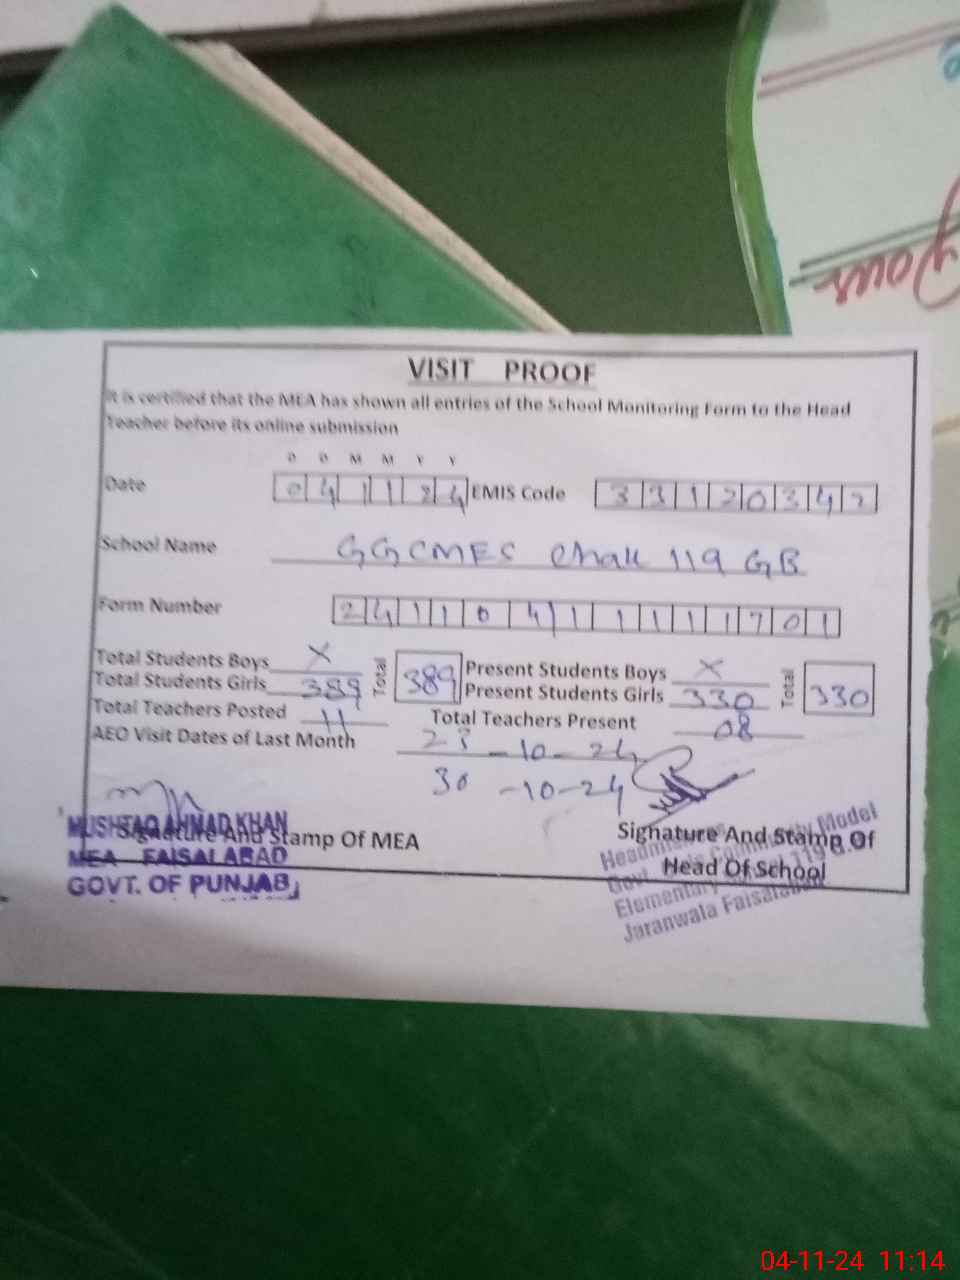 your
VISIT PROOF
It is certified that the MEA has shown all entries of the School Monitoring Form to the Head
Teacher before its online submission
D D M M Y Y
Date 04 11 24 EMIS Code 33120342
School Name GGCMES Chak 119 GB
Form Number 24110411111701
Total Students Boys X Present Students Boys X
Total Students Girls 389 Total 389 Present Students Girls 330 Total 330
Total Teachers Posted 11 Total Teachers Present 08
AEO Visit Dates of Last Month 23-10-24
30-10-24
MUSHTAQ AHMAD KHAN
Signature And Stamp Of MEA
MEA FAISALABAD
GOVT. OF PUNJAB
Signature And Stamp Of
Head Of School
Headmistress
Govt. Community Model
Elementary 119
Jaranwala Faisalabad
04-11-24 11:14